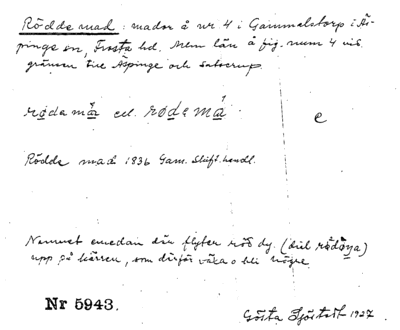 Rödde mad: mador å nr. 4 i Gammalstorp i Äs-
pinge sn, Frosta hd. Även län å fig. num 4 vid
gränsen till Äspinge och Satserup
rødamá el. rødemá
e
Rödde mad 1836 Gam. Skift. handl.
Namnet emedan där flyter röd dy (dial rødøya)
upp på kärren, som därför växa o bli högre
Nr 5943.
Gösta Sjöstedt 1927